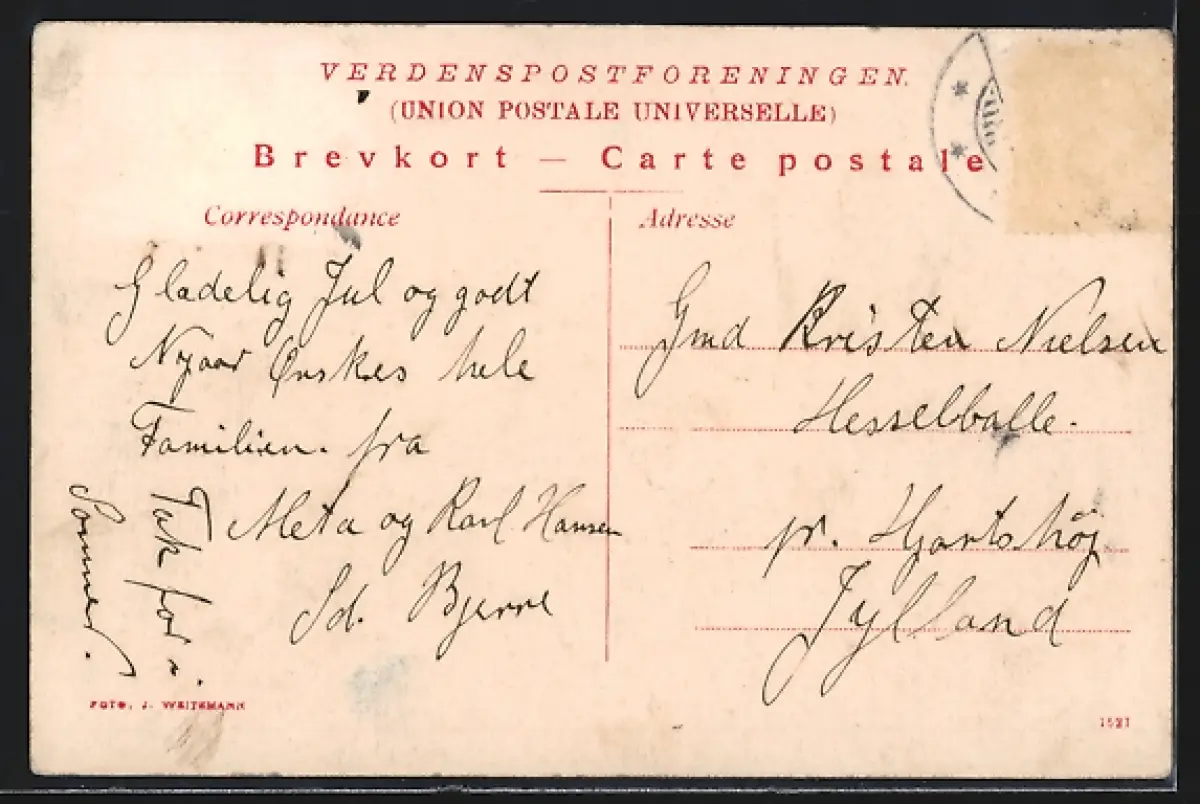 VERDENSPOSTFORENINGEN.
(UNION POSTALE UNIVERSELLE)
Brevkort — Carte postale
Correspondance
Gladelig Jul og godt
Nyaar Ønskes hele
Familien. fra
Meta og Karl Hansen
Sd. Bjerre
Tak for i.
Sommer.
Adresse
Gmd Kristen Nielsen
Hesselballe.
pr. Hjortshøj
Jylland
FOTO, J. WEITEMANN
1521